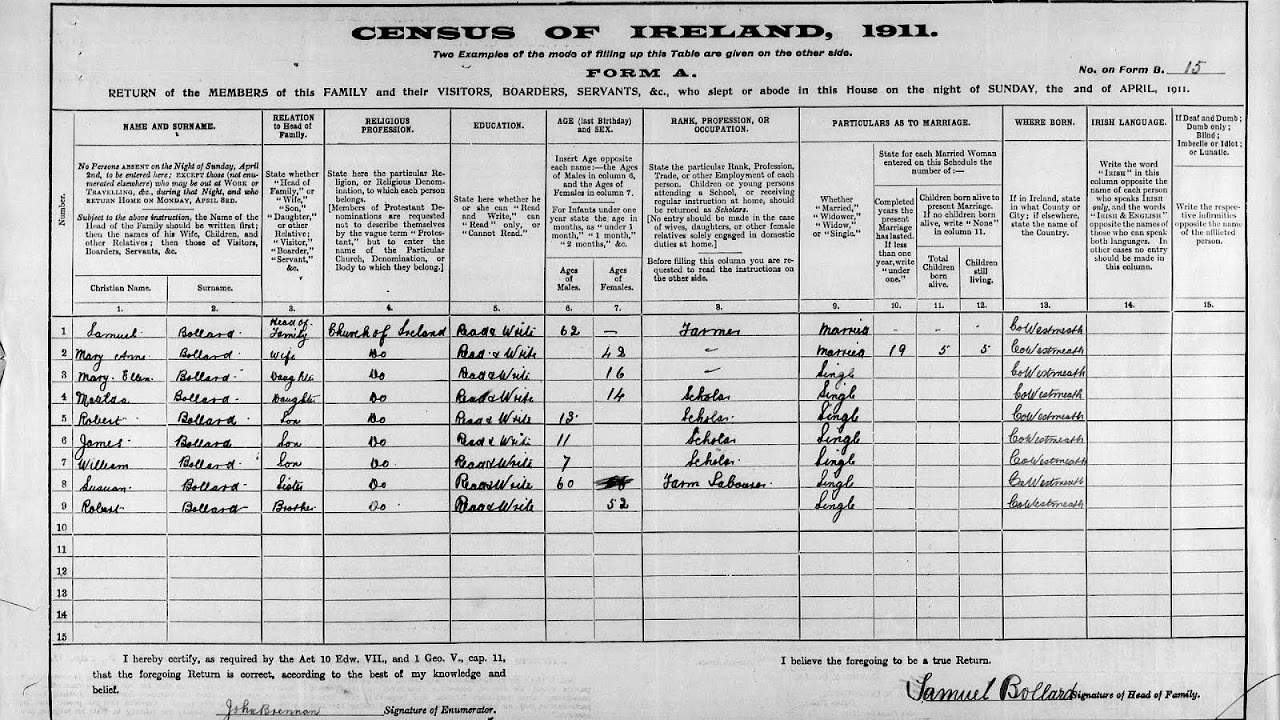 CENSUS OF IRELAND, 1911.
Two Examples of the mode of filling up this Table are given on the other side.
FORM A.
No. on Form B. 15
RETURN of the MEMBERS of this FAMILY and their VISITORS, BOARDERS, SERVANTS, &c., who slept or abode in this House on the night of SUNDAY, the 2nd of APRIL, 1911.
Number.
NAME AND SURNAME.
No Persons ABSENT on the Night of Sunday, April 2nd, to be entered here; EXCEPT those (not enumerated elsewhere) who may be out at WORK or TRAVELLING, &c., during that Night, and who RETURN HOME ON MONDAY, APRIL 3RD.
Subject to the above instruction, the Name of the Head of the Family should be written first; then the names of his Wife, Children, and other Relatives; then those of Visitors, Boarders, Servants, &c.
Christian Name. Surname.
RELATION to Head of Family.
State whether "Head of Family," or "Wife," "Son," "Daughter," or other Relative; "Visitor," "Boarder," "Servant," &c.
RELIGIOUS PROFESSION.
State here the particular Religion, or Religious Denomination, to which each person belongs.
[Members of Protestant Denominations are requested not to describe themselves by the vague term "Protestant," but to enter the name of the Particular Church, Denomination, or Body to which they belong.]
EDUCATION.
State here whether he or she can "Read and Write," can "Read" only, or "Cannot Read."
AGE (last Birthday) and SEX.
Insert Age opposite each name:—the Ages of Males in column 6, and the Ages of Females in column 7.
For Infants under one year state the age in months, as "under 1 month," "1 month," "2 months," &c.
Ages of Males. Ages of Females.
RANK, PROFESSION, OR OCCUPATION.
State the particular Rank, Profession, Trade, or other Employment of each person. Children or young persons attending a School, or receiving regular instruction at home, should be returned as Scholars.
[No entry should be made in the case of wives, daughters, or other female relatives solely engaged in domestic duties at home.]
Before filling this column you are requested to read the instructions on the other side.
PARTICULARS AS TO MARRIAGE.
Whether "Married," "Widower," "Widow," or "Single."
State for each Married Woman entered on this Schedule the number of:—
Completed years the present Marriage has lasted. If less than one year, write "under one."
Children born alive to present Marriage. If no children born alive, write "None" in column 11.
Total Children born alive. Children still living.
WHERE BORN.
If in Ireland, state in what County or City; if elsewhere, state the name of the Country.
IRISH LANGUAGE.
Write the word "IRISH" in this column opposite the name of each person who speaks IRISH only, and the words "IRISH & ENGLISH" opposite the names of those who can speak both languages. In other cases no entry should be made in this column.
If Deaf and Dumb; Dumb only; Blind; Imbecile or Idiot; or Lunatic.
Write the respective infirmities opposite the name of the afflicted person.
1. 2. 3. 4. 5. 6. 7. 8. 9. 10. 11. 12. 13. 14. 15.
1 Samuel Bollard Head of Family Church of Ireland Read & Write 62 — Farmer Married - - - Co Westmeath
2 Mary Anne Bollard Wife Do Read & Write 42 - Married 19 5 5 Co Westmeath
3 Mary Ellen Bollard Daughter Do Read & Write 16 - Single Co Westmeath
4 Bollard Daughter Do Read & Write 14 Scholar Single Co Westmeath
5 Robert Bollard Son Do Read & Write 13 Scholar Single Co Westmeath
6 James Bollard Son Do Read & Write 11 Scholar Single Co Westmeath
7 William Bollard Son Do Read & Write 7 Scholar Single Co Westmeath
8 Bollard Sister Do Read & Write 60 Farm Labourer Single Co Westmeath
9 Robert Bollard Brother Do Read & Write 52 Single Co Westmeath
10
11
12
13
14
15
I hereby certify, as required by the Act 10 Edw. VII., and 1 Geo. V., cap. 11,
that the foregoing Return is correct, according to the best of my knowledge and
belief.
John Brennan Signature of Enumerator.
I believe the foregoing to be a true Return.
Samuel Bollard Signature of Head of Family.